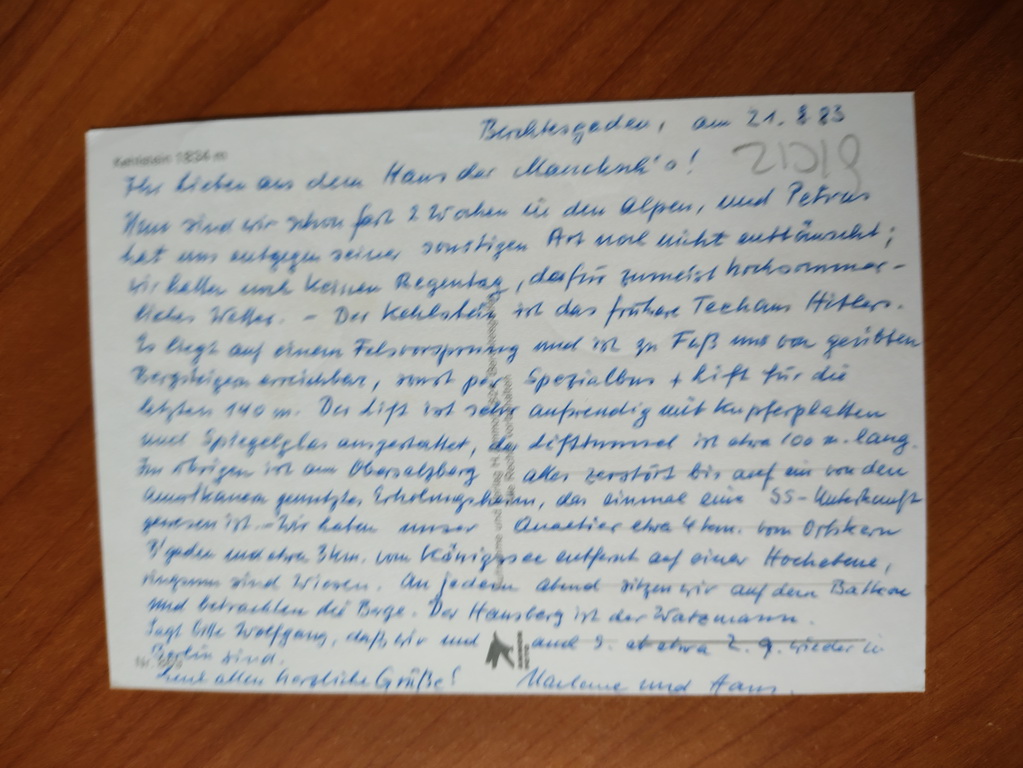 Berchtesgaden, am 21.8.83
21019
Kehlstein 1834 m
Ihr Lieben aus dem Haus der
Nun sind wir schon fast 2 Wochen in den Alpen, und Petrus
hat uns entgegen seiner sonstigen Art noch nicht enttäuscht;
wir hatten noch keinen Regentag, dafür zumeist hochsommer-
liches Wetter. – Der Kehlstein ist das frühere Teehaus Hitlers.
Es liegt auf einem Felsvorsprung und ist zu Fuß nur von geübten
Bergsteigern erreichbar, sonst per Spezialbus + Lift für die
letzten 140 m. Der Lift ist sehr aufwendig mit Kupferplatten
und Spiegelglas ausgestattet, der Lifttunnel ist etwa 100 m lang.
Im übrigen ist am Obersalzberg alles zerstört bis auf ein von den
Amerikanern genutztes Erholungsheim, das einmal eine SS-Unterkunft
gewesen ist. – Wir haben unser Quartier etwa 4 km. vom Ortskern
B'gaden und etwa 3 km. vom Königssee entfernt auf einer Hochebene,
ringsum sind Wiesen. An jedem Abend sitzen wir auf dem Balkon
und betrachten die Berge. Der Hausberg ist der Watzmann.
Sagt bitte Wolfgang, daß wir und ab etwa 2. 9. wieder in
Berlin sind.
Euch allen herzliche Grüße! Marlene und Hans.